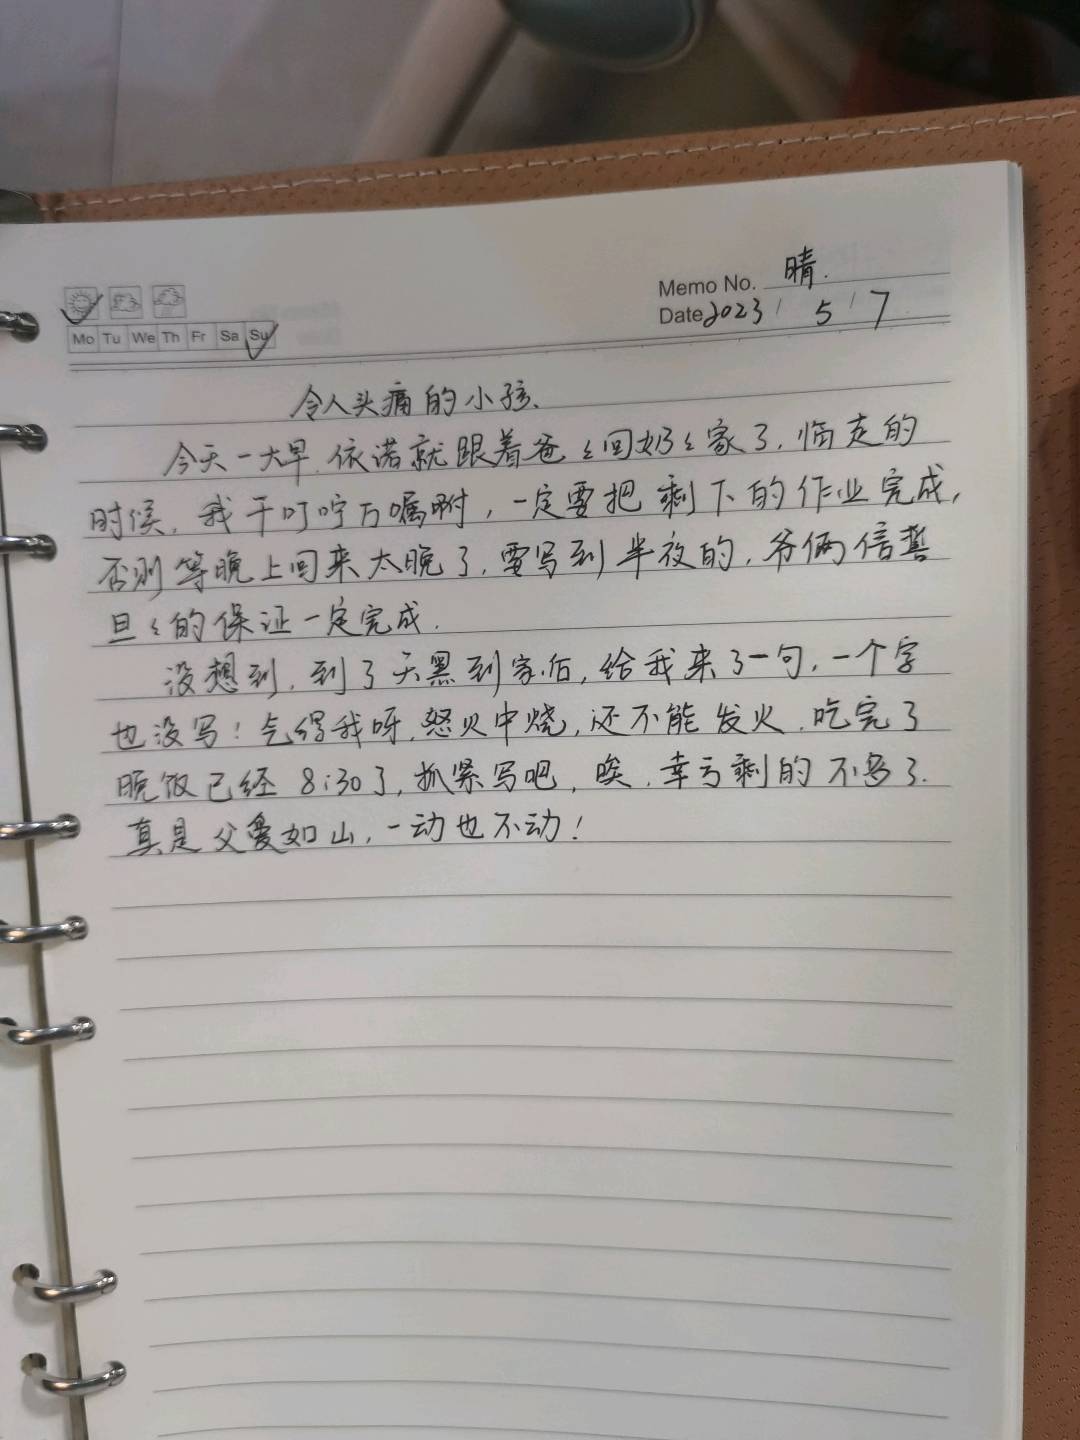 Memo No. 晴.
Mo Tu We Th Fr Sa Su
Date 2023 / 5 / 7
令人头痛的小孩、
今天一大早,依诺就跟着爸々回奶々家了,临走的
时候,我千叮咛万嘱咐,一定要把剩下的作业完成,
否则等晚上回来太晚了,要写到半夜的,爷俩信誓
旦々的保证一定完成.
没想到,到了天黑到家后,给我来了一句,一个字
也没写!气得我呀,怒火中烧,还不能发火,吃完了
晚饭已经8:30了,抓紧写吧,唉,幸亏剩的不多了.
真是父爱如山,一动也不动!